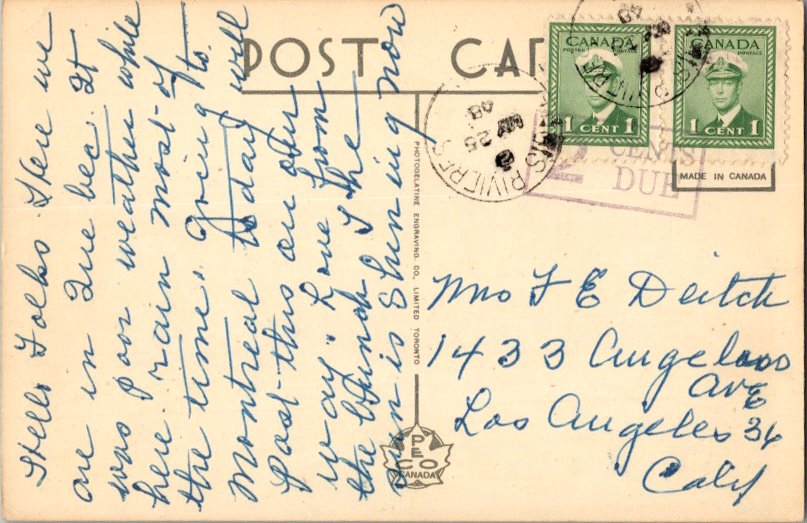 POST CA
Hello Folks. Here we
are in Quebec. It
was poor weather while
here. rain most of
the time. Going to
Montreal today will
Post this on our
way. Love from
the bunch. The
sun is Shining now
PHOTOGELATINE ENGRAVING CO., LIMITED TORONTO
PECO
CANADA
CANADA
POSTAGE POSTES
1 CENT 1
CANADA
POSTAGE POSTES
1 CENT 1
MADE IN CANADA
CENTS
DUE
OIS RIVIERES
25
48
Mrs F E Deitch
1433 Angelus
Ave
Los Angeles 34
Calif